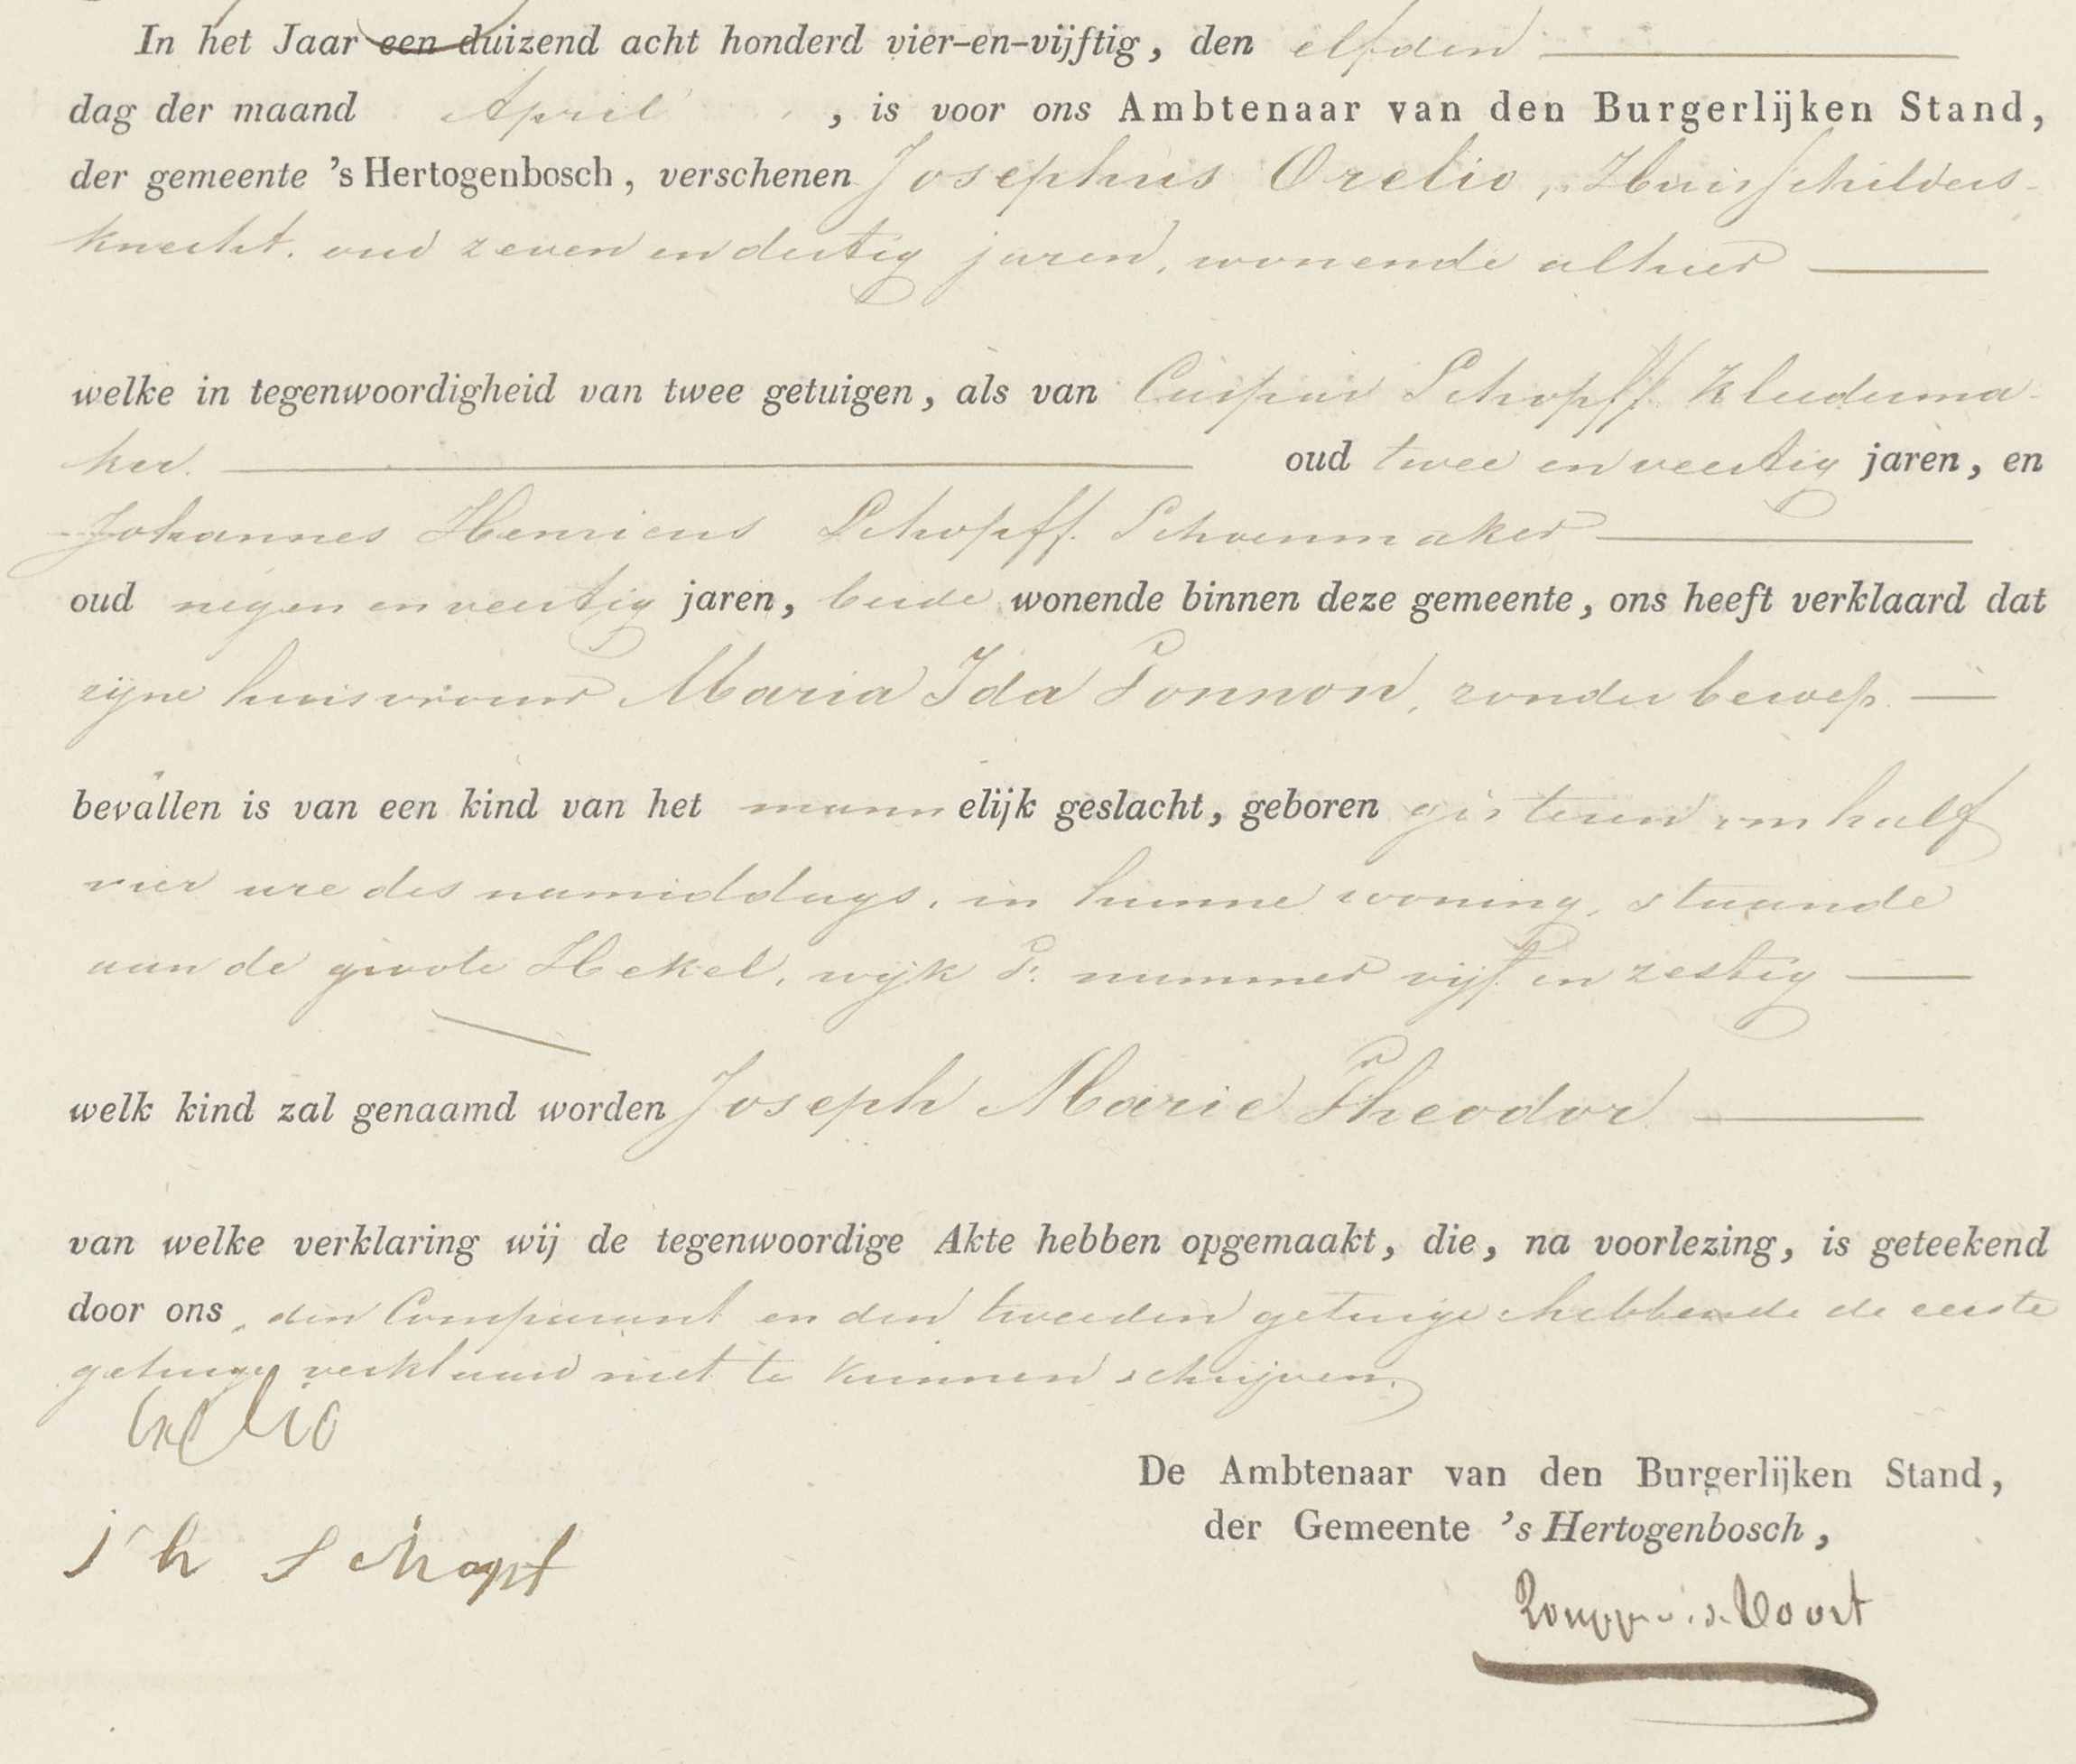 In het Jaar een duizend acht honderd vier-en-vijftig, den elfden
dag der maand April, is voor ons Ambtenaar van den Burgerlijken Stand,
der gemeente 's Hertogenbosch, verschenen Josephus Orelio, Huisschilders-
knecht, oud zeven en dertig jaren, wonende alhier
welke in tegenwoordigheid van twee getuigen, als van Caspar Schopff Kleederma-
ker. oud twee en veertig jaren, en
Johannes Henricus Schopff. Schoenmaker
oud negen en veertig jaren, beide wonende binnen deze gemeente, ons heeft verklaard dat
zijne huisvrouw Maria Ida Tonnon, zonder beroep
bevallen is van een kind van het mannelijk geslacht, geboren gisteren om half
vier ure des namiddags, in hunne woning, staande
aan de groote Hekel, wijk F. nummer vijf en zestig
welk kind zal genaamd worden Joseph Marie Theodor
van welke verklaring wij de tegenwoordige Akte hebben opgemaakt, die, na voorlezing, is geteekend
door ons, den Comparant en den tweeden getuige hebbende de eerste
getuige verklaard niet te kunnen schrijven.
Orelio
De Ambtenaar van den Burgerlijken Stand,
der Gemeente 's Hertogenbosch,
j h Schopf